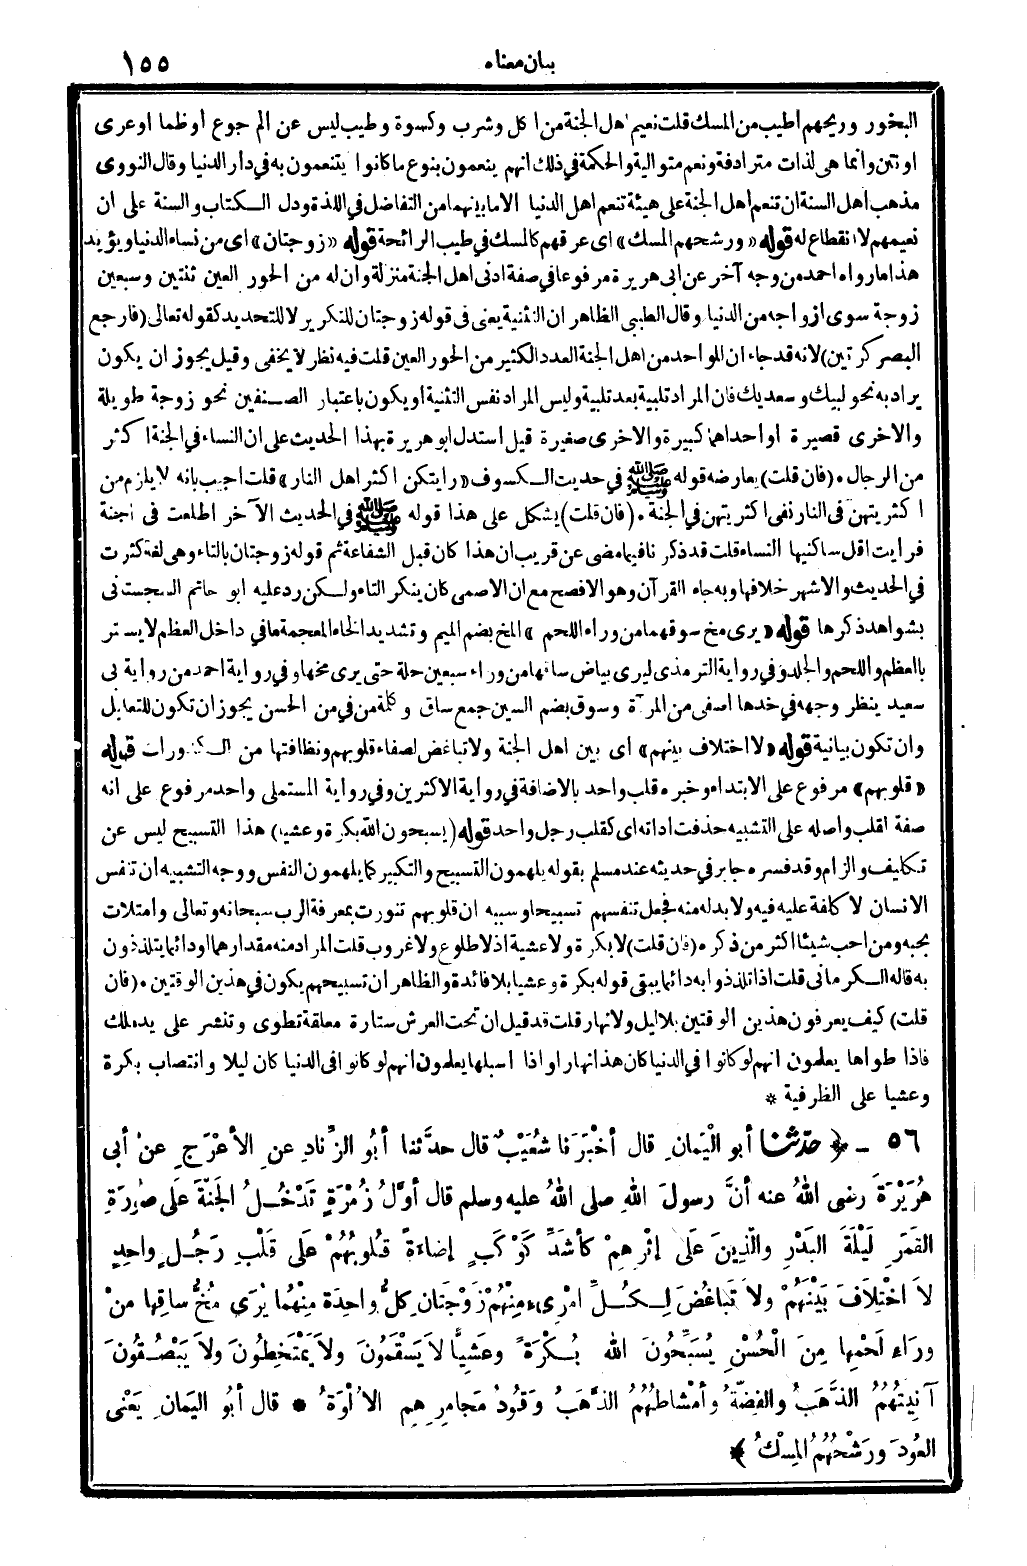 بيان معناه ١٥٥
البخور وريحهم أطيب من المسك قلت نعيم اهل الجنة من اكل وشرب وكسوة وطيب ليس عن الم جوع أو ظما او عرى
او نتن وانما هى لذات مترادفة ونعم متوالية والحكمة في ذلك انهم ينعمون بنوع ما كانوا يتنعمون به في دار الدنيا وقال النووى
مذهب اهل السنة ان تنعم اهل الجنة على هيئة تنعم اهل الدنيا الا ما بينهما من التفاضل في اللذة ودل الكتاب والسنة على ان
نعيمهم لا انقطاع له قوله «ورشحهم المسك» اى عرقهم كالمسك في طيب الرائحة قوله «زوجتان» اى من نساء الدنيا ويؤيد
هذا ما رواه احمد من وجه آخر عن ابى هريرة مرفوعا في صفة ادنى اهل الجنة منزلة وان له من الحور العين ثنتين وسبعين
زوجة سوى ازواجه من الدنيا وقال الطيبى الظاهر ان التثنية يعنى فى قوله زوجتان للتكرير لا للتحديد كقوله تعالى (فارجع
البصر كرتين) لانه قد جاء ان للواحد من اهل الجنة العدد الكثير من الحور العين قلت فيه نظر لا يخفى وقيل يجوز ان يكون
يراد به نحو لبيك وسعديك فان المراد تلبية بعد تلبية وليس المراد نفس التثنية او يكون باعتبار الصنفين نحو زوجة طويلة
والاخرى قصيرة او احداهما كبيرة والاخرى صغيرة قيل استدل ابو هريرة بهذا الحديث على ان النساء في الجنة اكثر
من الرجال . (فان قلت) يعارضه قوله ﷺ في حديث الكسوف «رايتكن اكثر اهل النار» قلت اجيب بانه لا يلزم من
اكثريتهن في النار نفى اكثريتهن في الجنة . (فان قلت) يشكل على هذا قوله ﷺ في الحديث الآخر اطلعت فى الجنة
فرايت اقل ساكنيها النساء قلت قد ذكرنا فيما مضى عن قريب ان هذا كان قبل الشفاعة ثم قوله زوجتان بالتاء وهى لغة كثرت
في الحديث والاشهر خلافها وبه جاء القرآن وهو الافصح مع ان الاصمعى كان ينكر التاء ولكن رد عليه ابو حاتم السجستانى
بشواهد ذكرها قوله «يرى مخ سوقهما من وراء اللحم» المخ بضم الميم وتشديد الخاء المعجمة ما في داخل العظم لا يستر
بالعظم واللحم والجلد وفي رواية الترمذى ليرى بياض ساقها من وراء سبعين حلة حتى يرى مخها وفي رواية احمد من رواية ابى
سعيد ينظر وجهه في خدها اصفى من المرآة وسوق بضم السين جمع ساق وكلمة من في من الحسن يجوز ان تكون للتعليل
وان تكون بيانية قوله «لا اختلاف بينهم» اى بين اهل الجنة ولا تباغض لصفاء قلوبهم ونظافتها من الكدورات قوله
«قلوبهم» مرفوع على الابتداء وخبره قلب واحد بالاضافة في رواية الاكثرين وفي رواية المستملى واحد مرفوع على انه
صفة لقلب واصله على التشبيه حذفت اداته اى كقلب رجل واحد قوله (يسبحون الله بكرة وعشيا) هذا التسبيح ليس عن
تكليف والزام وقد فسره جابر في حديثه عند مسلم بقوله يلهمون التسبيح والتكبير كما يلهمون النفس ووجه التشبيه ان تنفس
الانسان لا كلفة عليه فيه ولا بد له منه فجعل تنفسهم تسبيحا وسببه ان قلوبهم تنورت بمعرفة الرب سبحانه وتعالى وامتلات
بحبه ومن احب شيئا اكثر من ذكره . (فان قلت) لا بكرة ولا عشية اذ لا طلوع ولا غروب قلت المراد منه مقدارهما او دائما يتلذذون
به قاله الكرمانى قلت اذا تلذذوا به دائما يبقى قوله بكرة وعشيا بلا فائدة والظاهر ان تسبيحهم يكون في هذين الوقتين . (فان
قلت) كيف يعرفون هذين الوقتين بلا ليل ولا نهار قلت قد قيل ان تحت العرش ستارة معلقة تطوى وتنشر على يد ملك
فاذا طواها يعلمون انهم لو كانوا في الدنيا كان هذا نهارا واذا اسبلها يعلمون انهم لو كانوا فى الدنيا كان ليلا وانتصاب بكرة
وعشيا على الظرفية *
٥٦ ـ ﴿ حدثنا أبو الْيَمانِ قال أخْبَرَنا شُعَيْبٌ قال حدَّثنا أبُو الزِّنادِ عنِ الأعْرَجِ عنْ أبى
هُرَيْرَةَ رضى اللهُ عنه أنَّ رسولَ اللهِ صلى اللهُ عليه وسلم قال أوَّلُ زُمْرَةٍ تَدْخُلُ الجَنَّةَ عَلَى صُورَةِ
القَمَرِ لَيْلَةَ البَدْرِ والَّذِينَ عَلَى إثْرِهِمْ كأشَدِّ كَوْكَبٍ إضاءَةً قُلوبُهُمْ عَلَى قَلْبِ رَجُلٍ واحِدٍ
لاَ اخْتِلاَفَ بَيْنَهُمْ ولاَ تَباغُضَ لِكُلِّ امْرِىءٍ مِنْهُمْ زَوْجَتَانِ كلُّ واحِدَةٍ مِنْهُما يُرَى مُخُّ ساقِها مِنْ
ورَاءِ لَحْمِها مِنَ الْحُسْنِ يُسَبِّحُونَ الله بُكْرَةً وعَشِيًّا لاَ يَسْقَمُونَ ولاَ يَمْتَخِطُونَ ولاَ يَبْصُقُونَ
آنِيَتُهُمُ الذَّهَبُ والفِضَّةُ وأمْشاطُهُمُ الذَّهَبُ وَقُودُ مَجامِرِهِمِ الألُوَةُ * قال أبُو اليَمانِ يَعْنى
العُودَ ورَشْحُهُمُ المِسْكُ ﴾